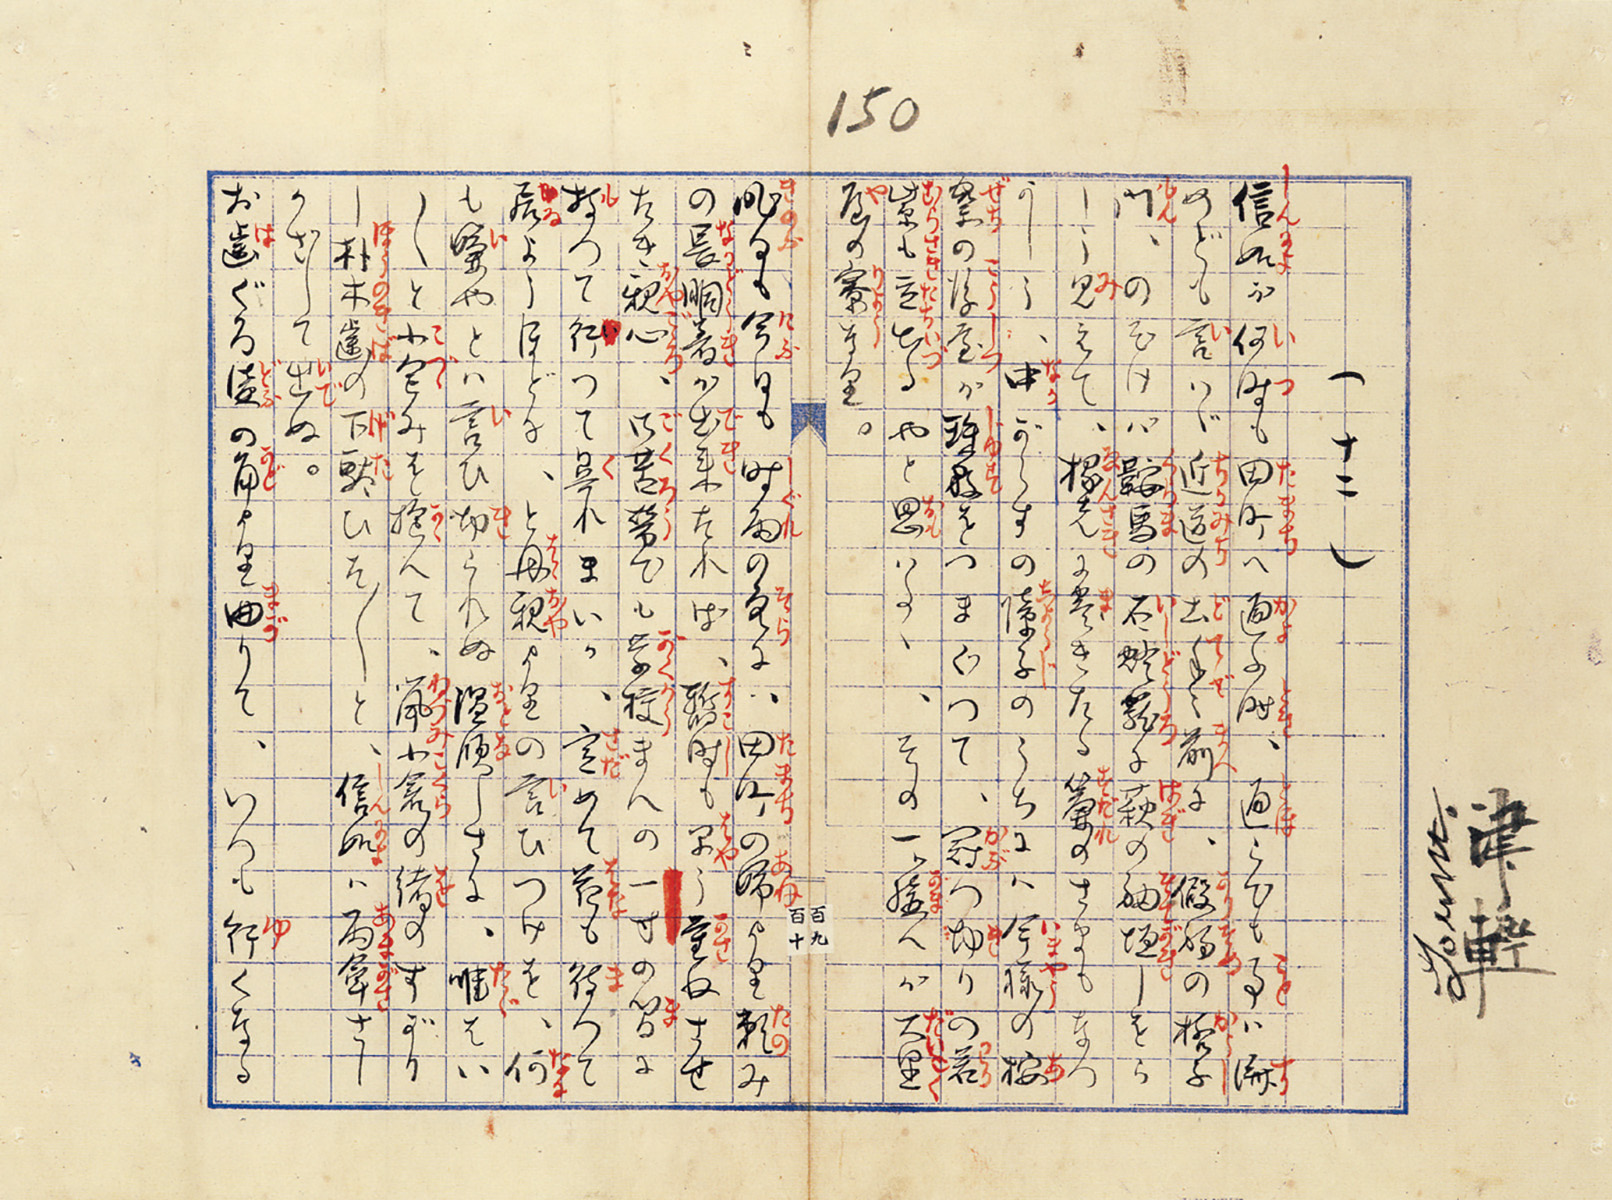 150
(十二)
信如が何時も田町へ通ふ時、通らでも事は濟
めども言はゞ近道の土手々前に、假初の格子
門、のぞけば鞍馬の石燈籠に萩の袖垣しをら
しう見えて、椽先に卷きたる簾のさまもなつ
かしう、中がらすの障子のうちには今様の按
察の後室が珠數をつまぐつて、冠つ切りの若
紫も立出るやと思はるゝ、その一ト搆へが大黒
屋の寮なり。
百九
百十
昨日も今日も時雨の空に、田町の姉より頼み
の長胴着が出來たれば、暫時も早う重ねさせ
たき親心、御苦勞でも學校まへの一寸の間に
持つて行つて呉れまいか、定めて花も待つて
居ようほどに、と母親よりの言ひつけを、何
も嫌やとは言ひ切られぬ温順しさに、唯はい
〳〵と小包みを抱へて、鼠小倉の緒のすがり
し朴木齒の下駄ひた〳〵と、信如は雨傘さし
かざして出ぬ。
お齒ぐろ溝の角より曲りて、いつも行くなる
津軽